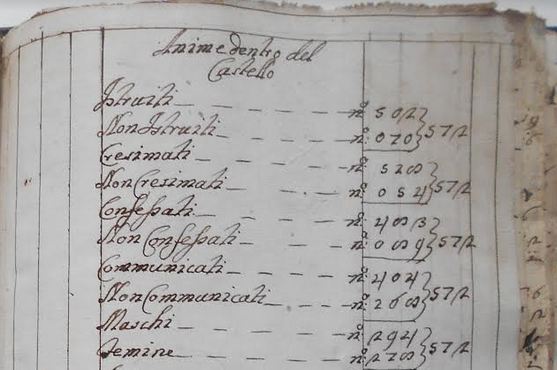 Anime dentro del
Castello
Istruiti n.º 502
Non Istruiti n.º 070 } 572
Cresimati n.º 518
Non Cresimati n.º 054 } 572
Confessati n.º 483
Non Confessati n.º 089 } 572
Communicati n.º 404
Non Communicati n.º 168 } 572
Maschi n.º 294
Femine n.º 278 } 572